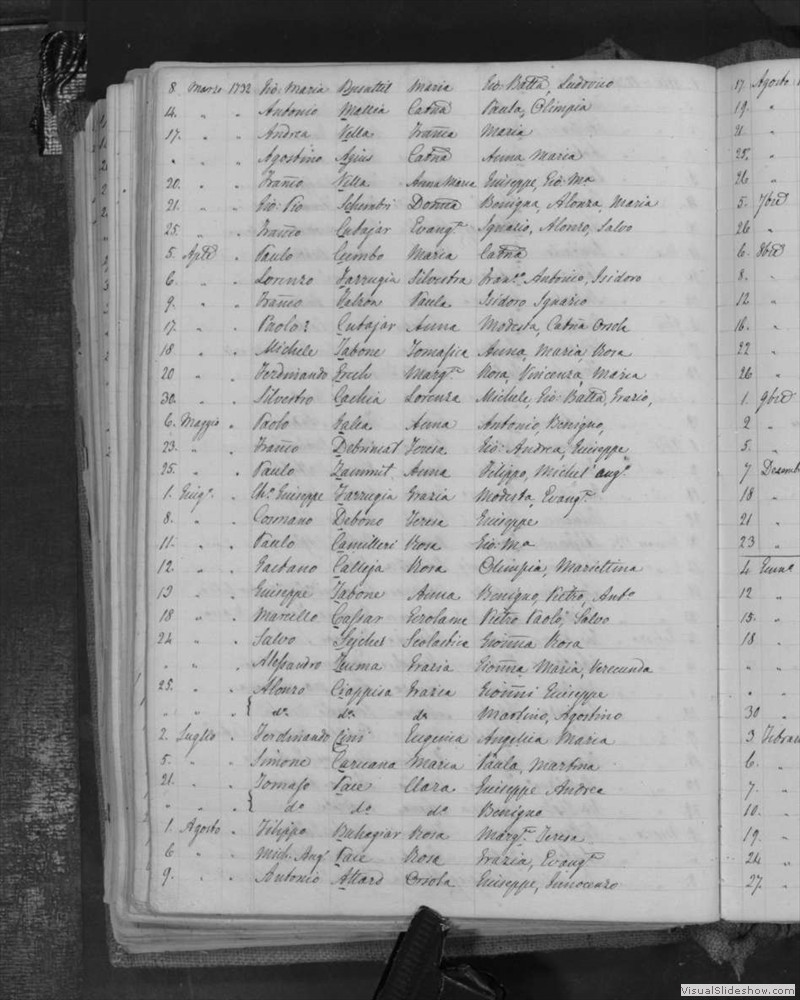 8. Marzo 1732 Gio: Maria Busuttil Maria Gio: Batta, Ludovico
14. " " Antonio Mallia Catna Paula, Olimpia
17. " " Andrea Vella Franca Maria
" " " Agostino Agius Catna Anna Maria
20. " " Franco Vella Anna Maria Giuseppe, Gio: Ma
21. " " Gio: Pio Schembri Domca Benigna, Alonza, Maria
25. " " Franco Cutajar Evanga Ignazio, Alonzo, Salvo
5. Aple " Paulo Cumbo Maria Catna
6. " " Lorenzo Farrugia Silvestra Franco, Antonio, Isidoro
9. " " Franco Falzon Paula Isidoro Ignazio
17. " " Paolo Cutajar Anna Modesta, Catna Orsola
18 " " Michele Tabone Tomasica Anna, Maria Rosa
20 " " Ferdinando Grech Marga Rosa, Vincenza, Maria
30. " " Silvestro Cachia Lorenza Michele, Gio: Batta, Grazio,
6. Maggio " Paolo Galea Anna Antonio, Benigno,
23. " " Franco Debrincat Teresa Gio: Andrea, Giuseppe
25. " " Paulo Zammit Anna Filippo, Michel' Ang.
1. Giugo " Giuseppe Farrugia Grazia Modesta, Evanga
8. " " Cosmano Debono Teresa Giuseppe
11. " " Paulo Camilleri Rosa Gio: Ma
12. " " Gaetano Calleja Rosa Olimpia, Mariettina
13 " " Giuseppe Tabone Anna Benigno, Pietro, Anto
18 " " Marcello Cassar Gerolama Pietro Paolo, Salvo
24 " " Salvo Sejchel Scolastica Gionna Rosa
" " " Alessandro Zuma Grazia Gionna Maria, Verecunda
25. " " Alonzo Ciappisa Grazia Gionni Giuseppe
" " " { do do do Martino, Agostino
2. Luglio " Ferdinando Cini Eugenia Angelica Maria
5. " " Simone Caruana Maria Paula, Martina
21. " " Tomaso Pace Clara Giuseppe Andrea
" " " { do do do Benigno
1. Agosto " Filippo Buhagiar Rosa Marga Teresa
6 " " Mich: Ang Pace Rosa Grazia, Evanga
9. " " Antonio Attard Orsola Giuseppe, Innocenzo
17. Agosto
19. "
21 "
25. "
26 "
5. 7bre
26 "
6. 8bre
8. "
12 "
16. "
22 "
26 "
1. 9bre
2 "
5. "
7 Decemb
18 "
21 "
23 "
4 Genn
12 "
15. "
18 "
" "
" "
30 "
3 Febra
6. "
7. "
10. "
19. "
24 "
27. "
VisualSlideshow.com